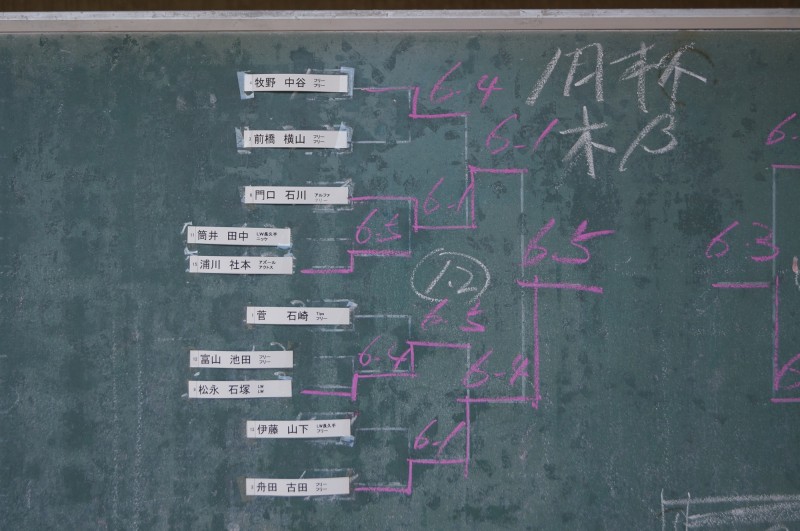 牧野 中谷 フリー フリー
6-4
前橋 横山 フリー フリー
6-1
門口 石川 アルファ フリー
6-1
筒井 田中 LW長久手 ニッケ
6-3
浦川 社本 アズール アウトス
6-5
6-3
1.2
菅 石崎 Tim フリー
6-3
富山 池田 フリー フリー
6-4
松永 石塚 LW LW
6-4
伊藤 山下 LW長久手 フリー
6-1
舟田 古田 フリー フリー